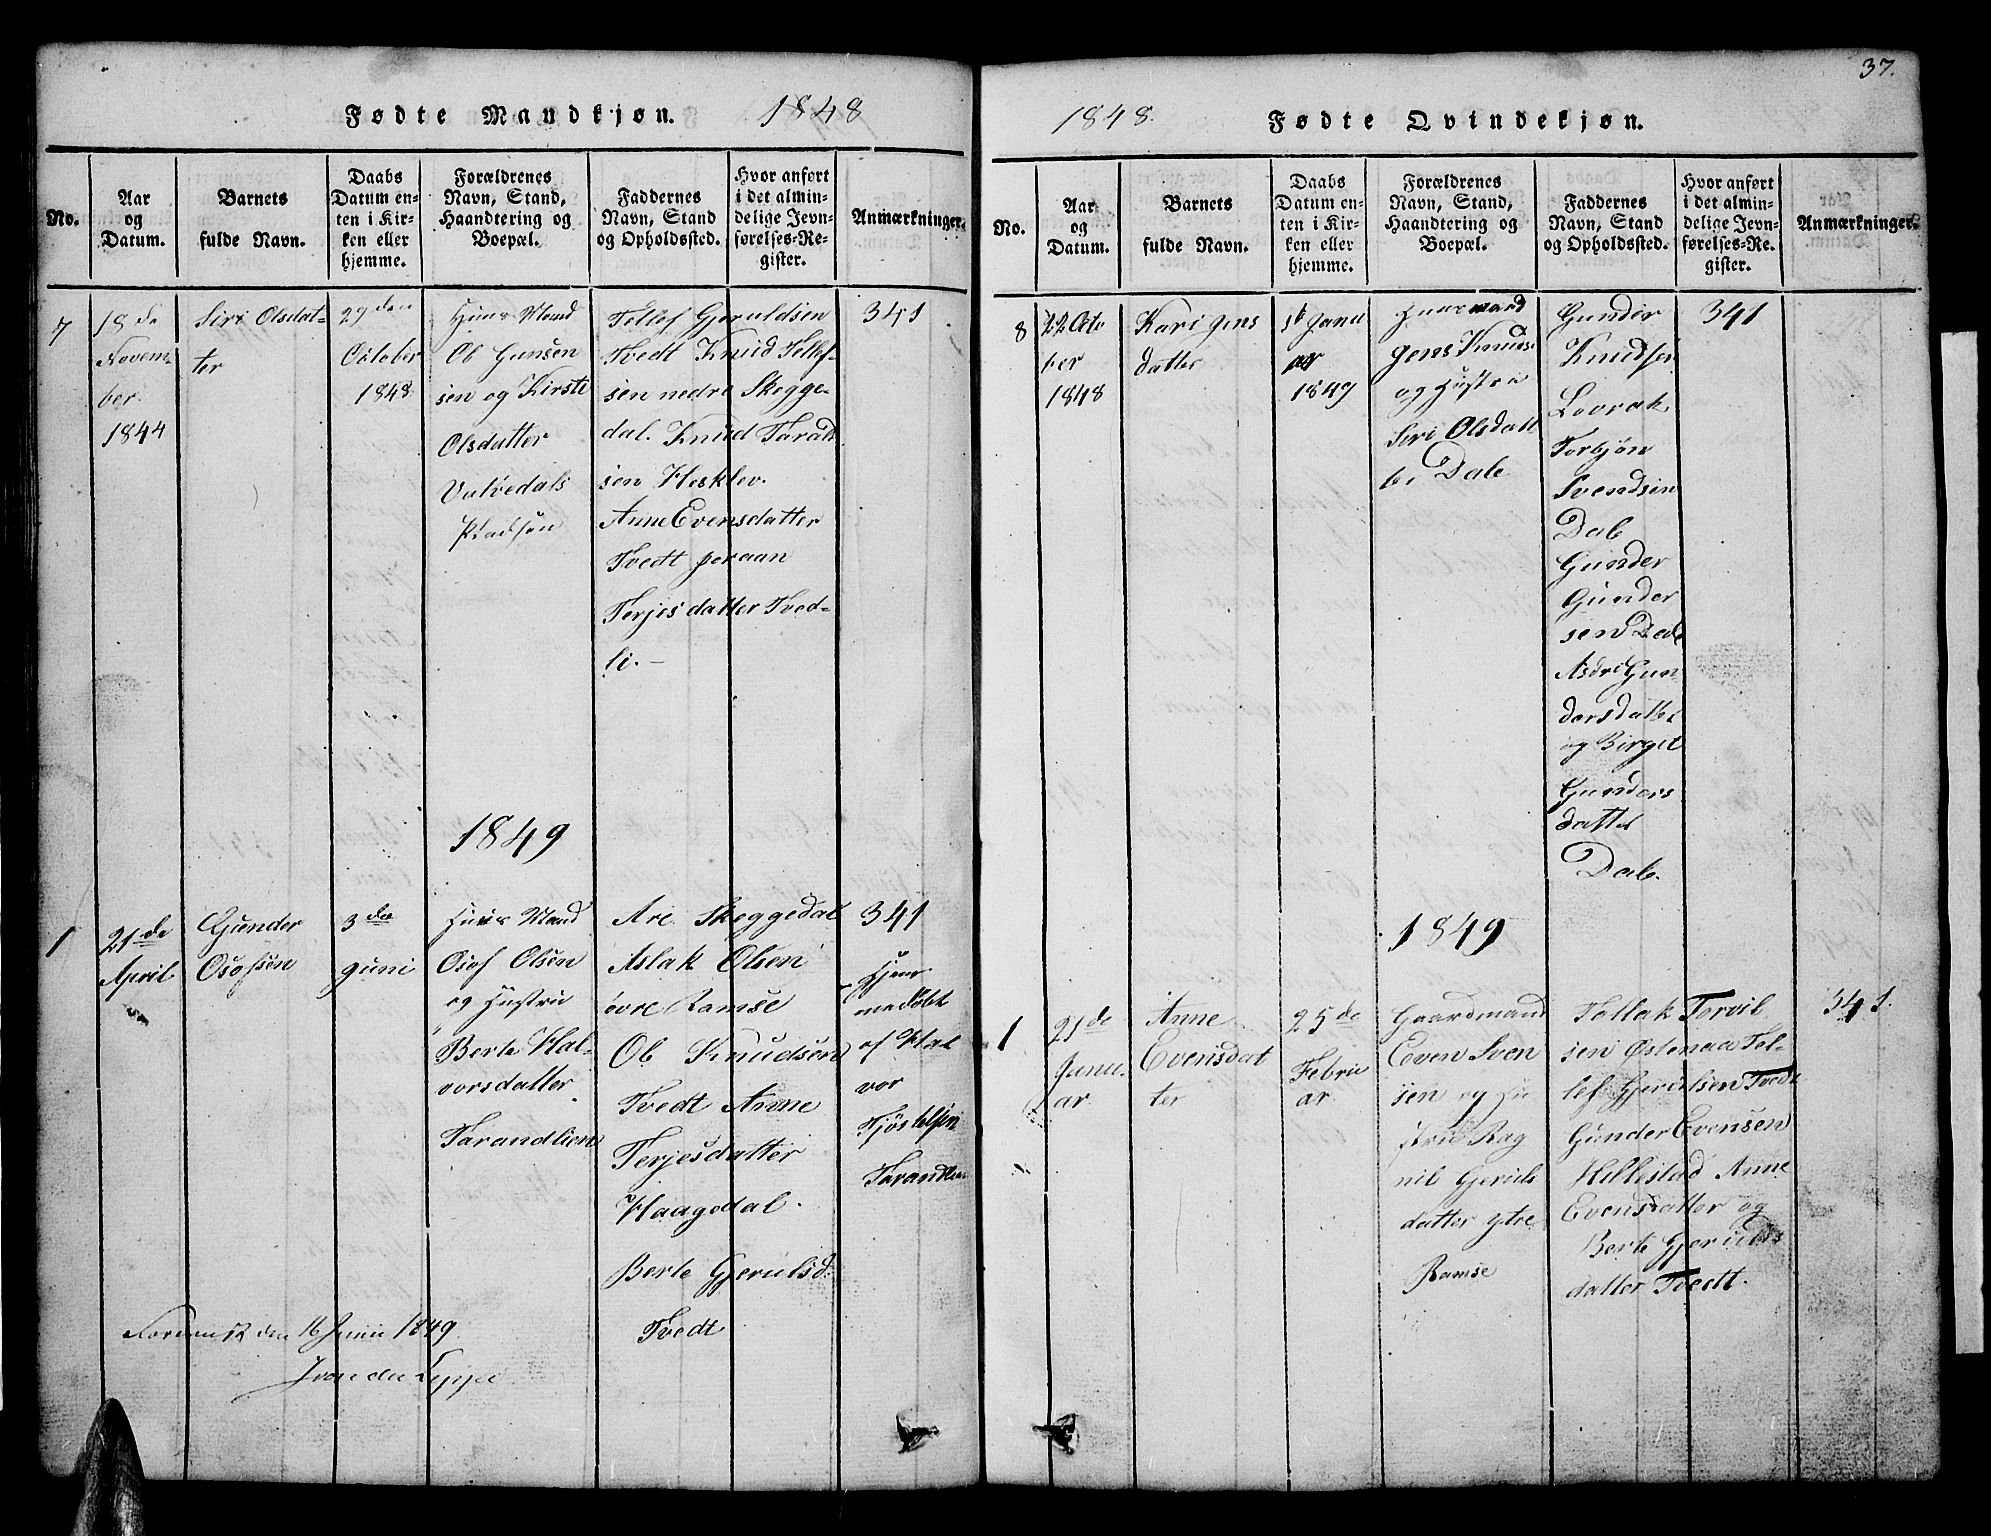 Fødte Mandkjøn. 1848
No.
Aar
og
Datum.
Barnets
fulde Navn.
Daabs
Datum en-
ten i Kir-
ken eller
hjemme.
Forældrenes
Navn, Stand,
Haandtering og
Boepæl.
Faddernes
Navn, Stand
og Opholdssted.
Hvor anført
i det almin-
delige Jevn-
førelses-Re-
gister.
Anmærkninger.
7
18 de
Novem-
ber
1844
Siri Olsdat-
ter
29 den
October
1848
Huus Mand
Ole Gunsen
sen og Kirste
Olsdatter
Pladsen
Tellef Gjeruldsen
Tvedt Knud Tellef-
sen nedre Skegge-
dal. Knud Tarald
sen Hesklev.
Anne Evensdatter
Tvedt
Terjesdatter Tved-
li. –
341
1849
1
21 de
April
Gunder
Osofsen
3 die
Juni
Huus Mand
Osof Olsen
og Hustru
Berte Hal-
vorsdatter
Tarandlien
Are Skeggedal
Aslak Olsen
øvre Ramse
Ole Knudsen
Tvedt Anne
Terjesdatter
Haagedal.
Berte Gjerulsd:
Tvedt
341
Hjem-
medøbt
af Hal
vor
Tarandlien
den 16 Juni 1849
37.
1848. Fødte Qvindekjøn.
No.
Aar
og
Datum.
Barnets
fulde Navn.
Daabs
Datum en-
ten i Kir-
ken eller
hjemme.
Forældrenes
Navn, Stand,
Haandtering og
Boepæl.
Faddernes
Navn, Stand
og Opholdssted.
Hvor anført
i det almin-
delige Jevn-
førelses-Re-
gister.
Anmærkninger.
8
22 Octo
ber
1848
Kari Jens
datter
1te Janu
ar
1849
Huusmand
Jens Knuds
og Hustru
Siri Olsdatt
er Dale
Gunder
Knudsen
Lovrak
Torbjøn
Svendsen
Dale
Gunder
Gunder
sen Dale
Asdri Gun-
dersdatter
og Birgit
Gunders
datter
Dale.
341
1849
1
21 de
Janu-
ar
Anne
Evensdat
ter
25 de
Febru
ar
Gaardmand
Even Sven
sen og Hu
stru Rag
nil Gjeruls
datter ytre
Ramse
Tellak Torvil
sen Østenaa Tel-
lef Gjerulsen Tvedt
Gunder Evensen
Hillestad Anne
Evensdatter og
Berte Gjerulds
datter Tvedt.
341.